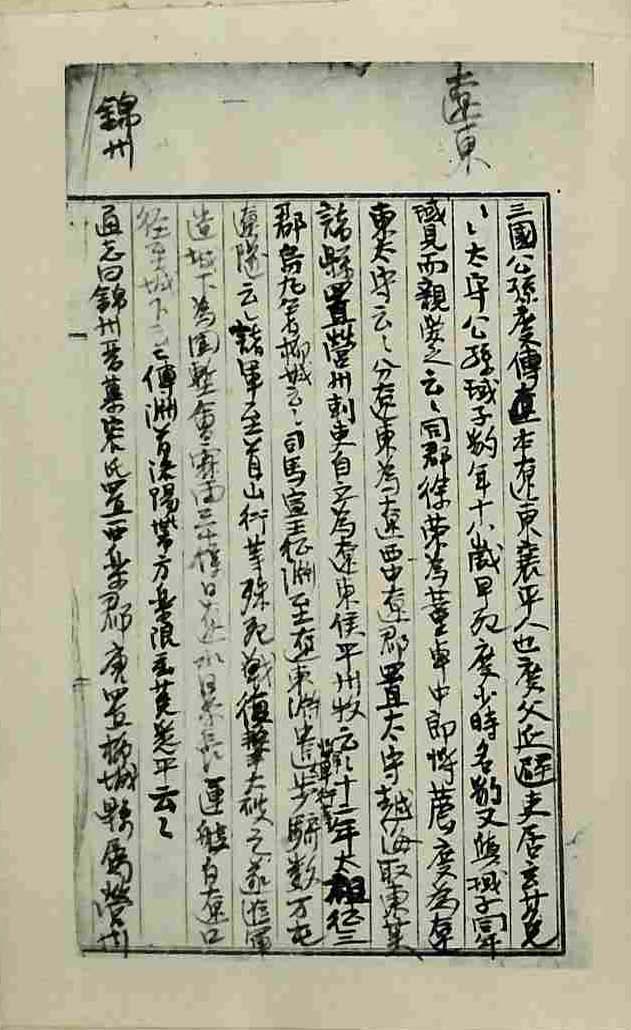 遼東
三國公孫度傳度本遼東襄平人也度父延避吏居玄菟
〻〻太守公孫琙子豹年十八歲早死度少時名豹又與琙子同年
琙見而親愛之云〻同郡徐榮爲董卓中郎將薦度爲遼
東太守云〻分遼東爲遼西中遼郡置太守越海取東萊
諸縣置營州刺史自立爲遼東侯平州牧云〻十二年太祖征三
郡烏丸屠柳城云〻司馬宣王征淵至遼東淵遣將軍衍等步騎數万屯
遼隧云〻諸軍至首山衍等殊死戰復擊大破之遂進軍
造城下爲圍塹會霖雨三十餘日遼水暴長運船自遼口
徑至城下云〻傳淵首洛陽帶方樂浪玄菟悉平云〻
錦州
通志曰錦州晉慕容氏置西樂郡唐置柳城縣屬營州